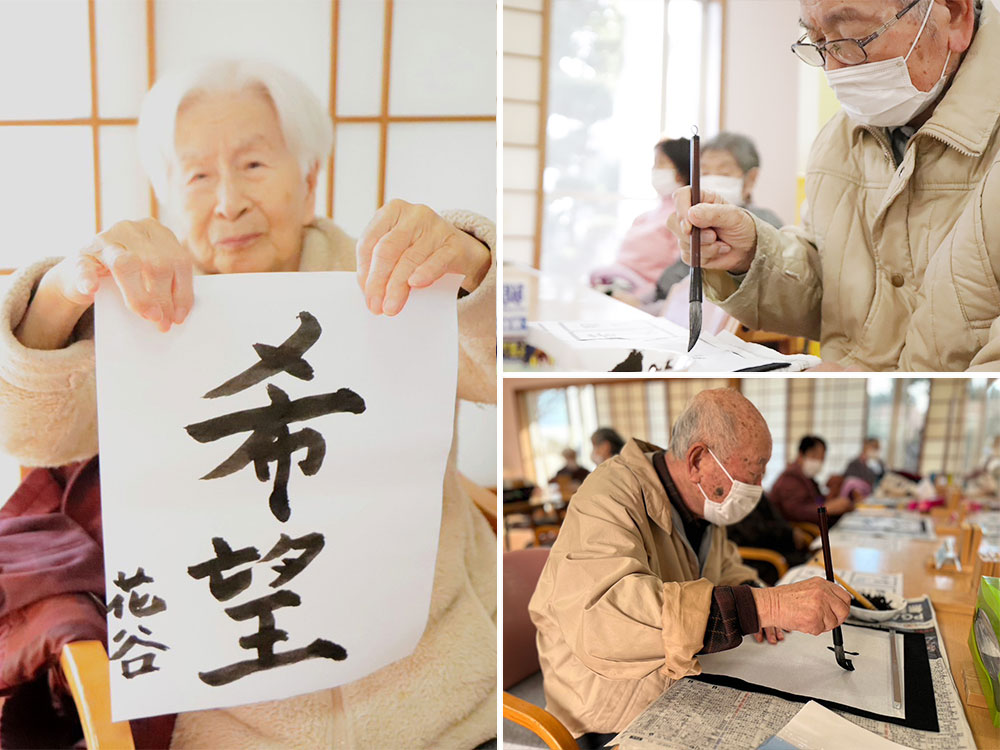 希望
花谷